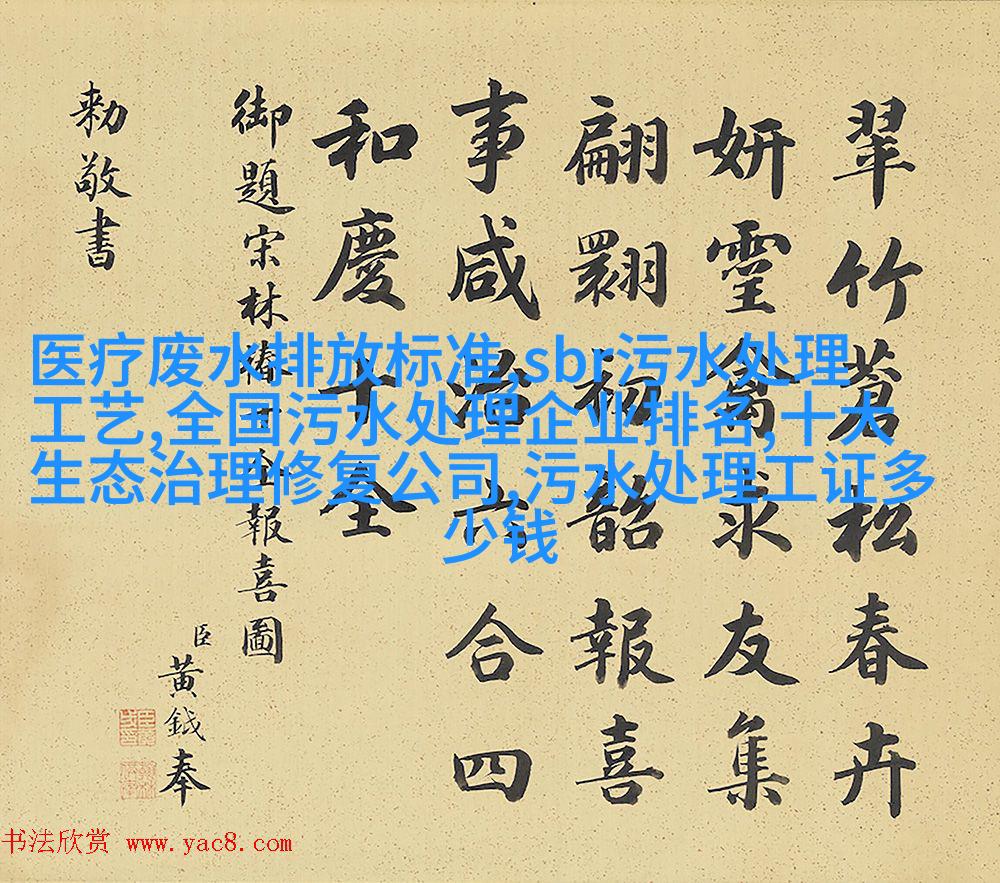 翠竹蒼松春卉
妍靈禽求友集
翩翾初韶報喜
事咸治六合四
和慶十全
御題宋林椿十全報喜圖
臣黄鉞奉
勅敬書
医疗废水排放标准,sbr污水处理
工艺,全国污水处理企业排名,十大
生态治理修复公司,污水处理工证多
少钱
书法欣赏 www.yac8.com